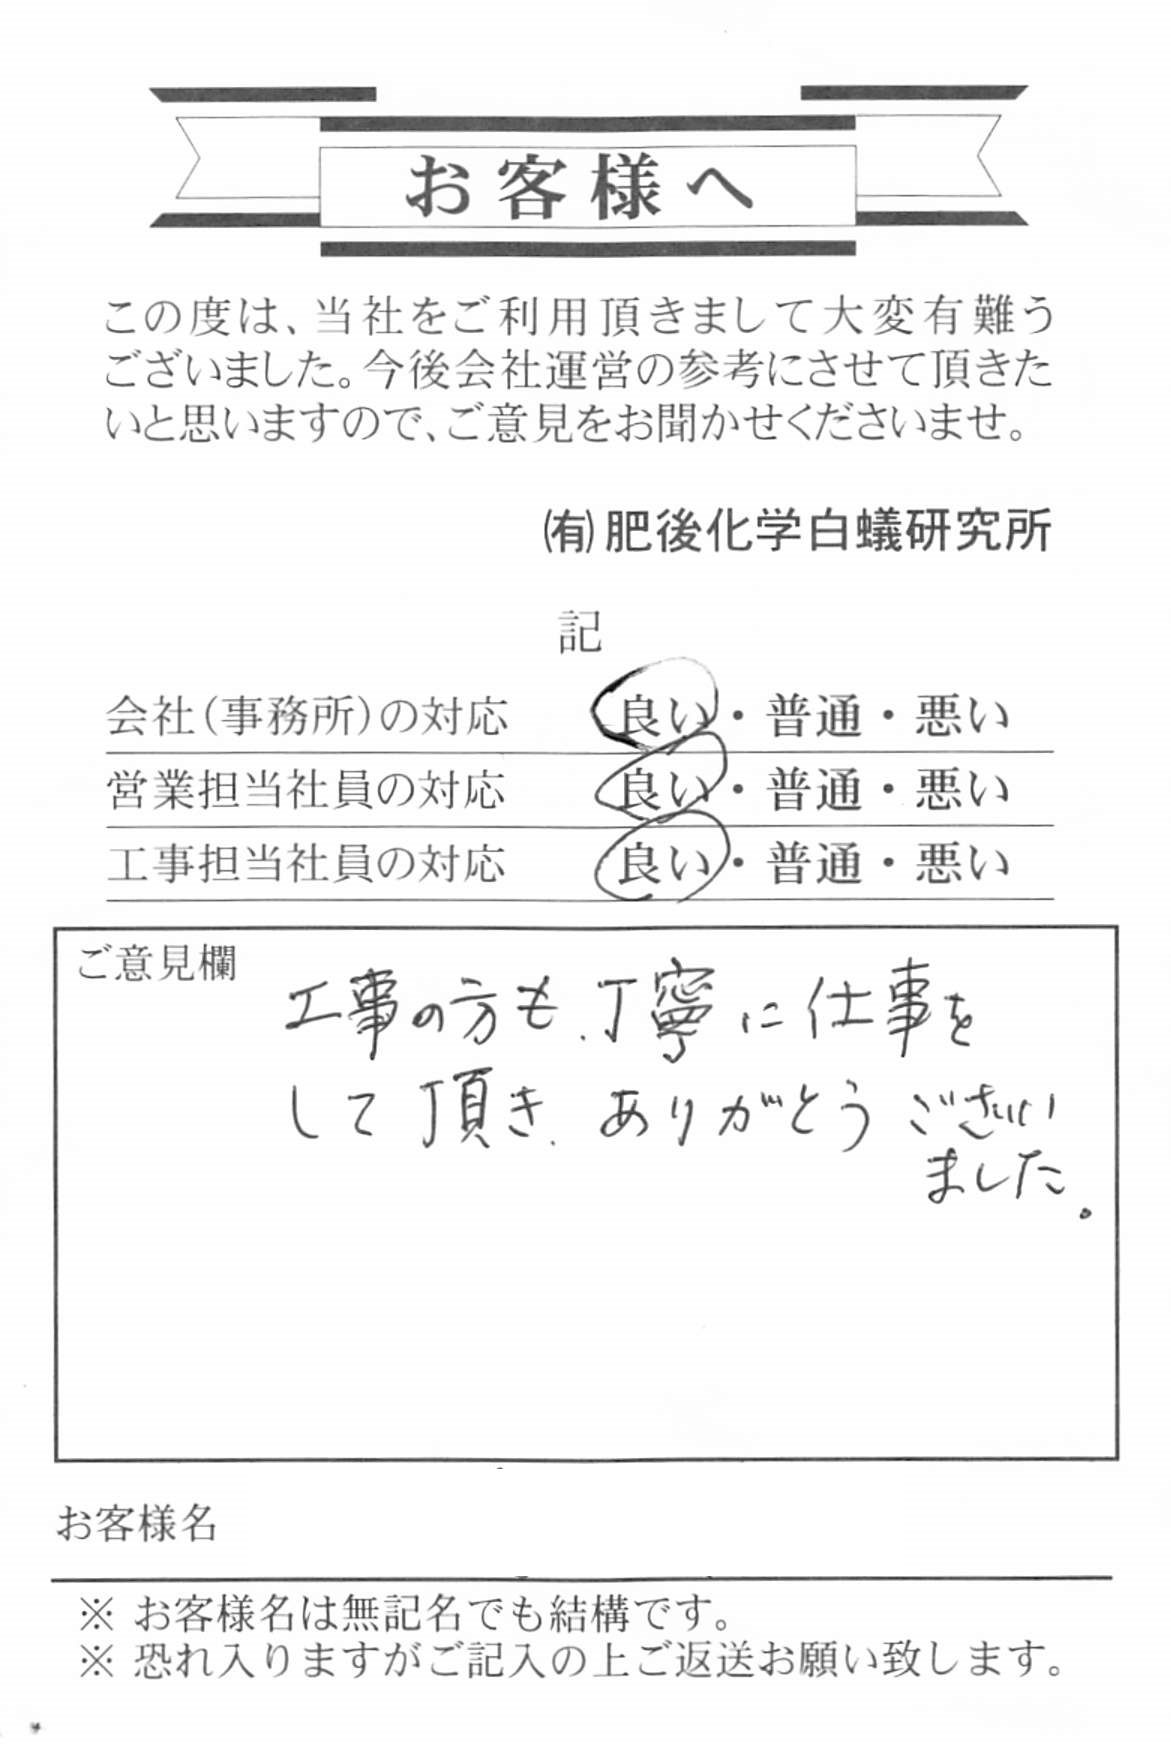 お客様へ
この度は、当社をご利用頂きまして大変有難う
ございました。今後会社運営の参考にさせて頂きた
いと思いますので、ご意見をお聞かせくださいませ。
㈲肥後化学白蟻研究所
記
会社(事務所)の対応 良い・普通・悪い
営業担当社員の対応 良い・普通・悪い
工事担当社員の対応 良い・普通・悪い
ご意見欄
工事の方も、丁寧に仕事を
して頂き、ありがとうござい
ました。
お客様名
※ お客様名は無記名でも結構です。
※ 恐れ入りますがご記入の上ご返送お願い致します。